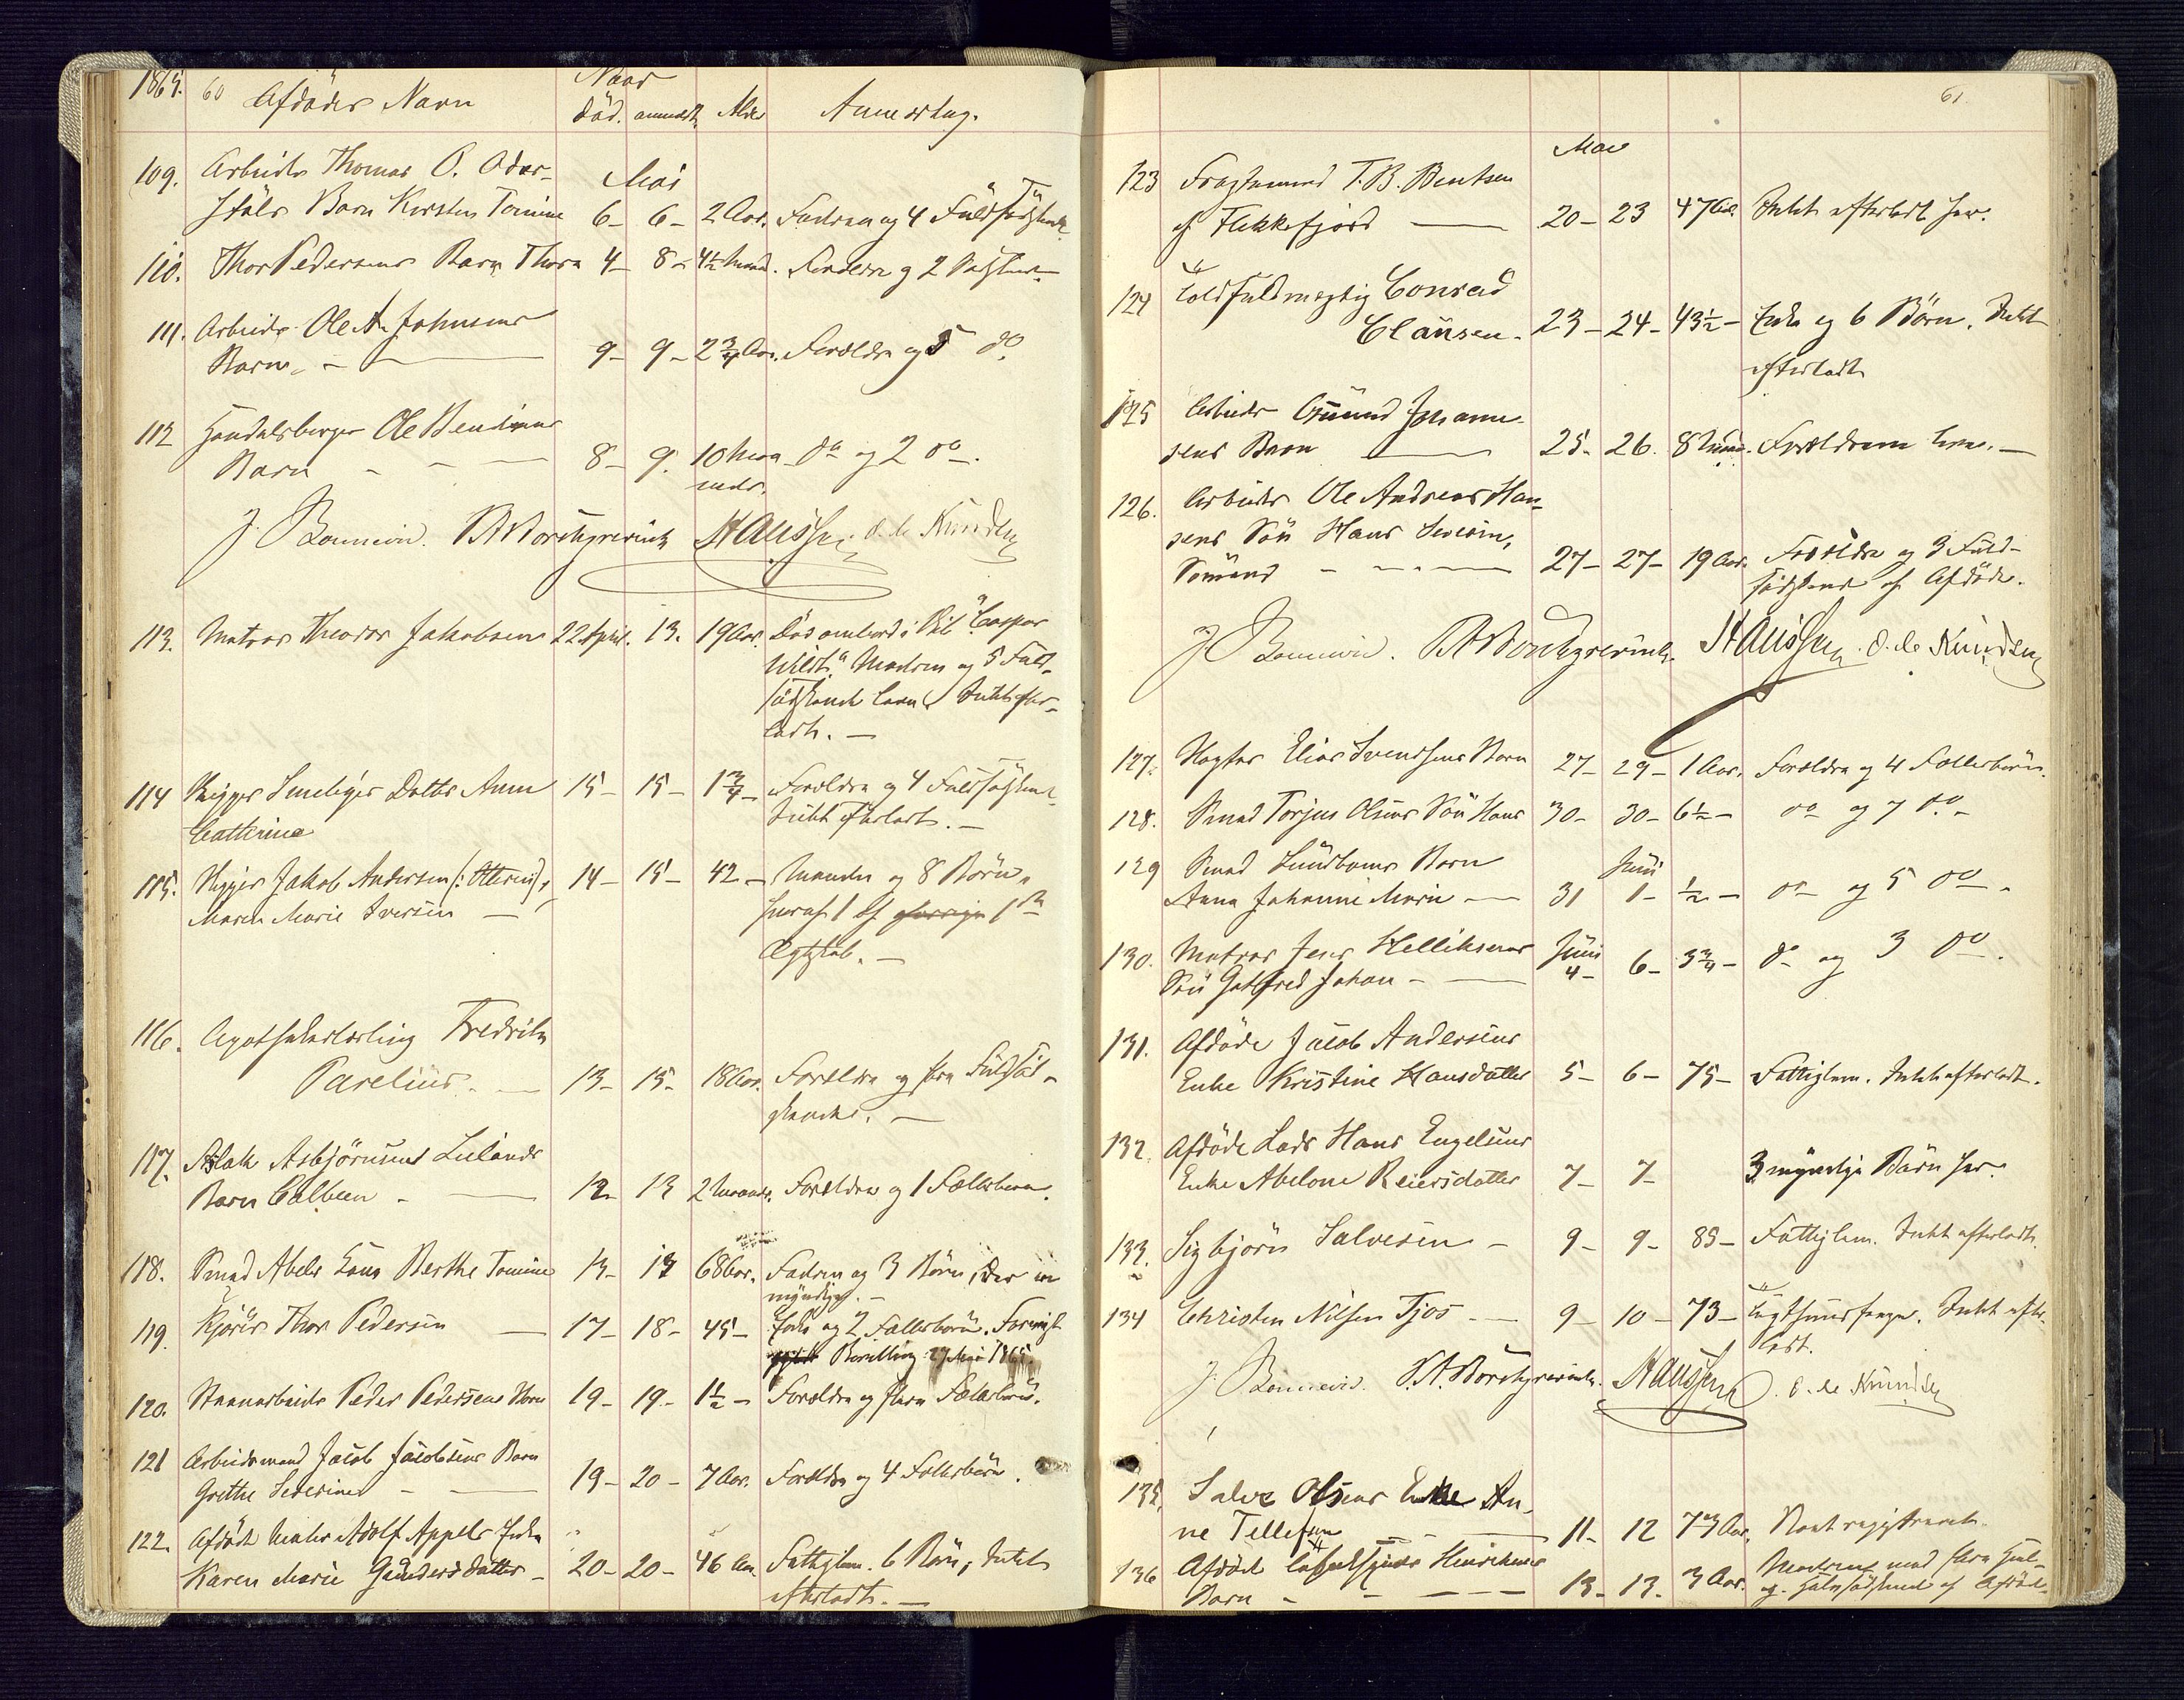 1865. 60 Afdødes Navn Naar
Død. anmeldt. Alder Anmerkng.
109. Arbeider Thomas O. Odder-
støls Barn Kirsten Tomine Mai 6 – 6 – 2 Aar. Faderen og 4 Fuldsødskende
110. Thor Pedersens Barn Thora 4 – 8 – 4½ Maand. Forældre og 2 Sødskende
111. Arbeider Ole A. Johnsens
Barn – 9 – 9 – 2¾ Aar. Forældre og 5 do.
112 Handelsborger Ole Bentsens
Barn – – 8 – 9. 10 Maa- do og 2 do.
neder.
J. Bonnevie. Hanssen O. de Knudsen
113. Matros Theodor Jakobsen 22 April. 13. 19 Aar. Død ombord i Skib "Caspar
Wildt." Moderen og 5 Fuld-
sødskende leve. Intet efter-
ladt. –
114 Rigger Smebyes Datter Anne 15 – 15 – 1¾ – Forældre og 4 Fuldsødskende
Cathrine Intet efterladt. –
115. Rigger Jakob Andersen (: Otterøi),
Maren Marie Iversen – 14 – 15 – 42 – Manden og 8 Børn,
hvoraf 1 af 1ste
Ægteskab. –
116. Apothekerlærling Fredrik
Parelius. – 13 – 15 – 18 Aar. Forældre og flere Fuldsød-
skende. –
117. Aslak Asbjørnsens Lulands
Barn – 12 – 13 2 Maaneder. Forældre og 1 Fællesbarn.
118. Smed Abels Kone Berthe Tomine 13 – 17 68 Aar. Faderen og 3 Børn, der ere
myndige. –
119. Kjører Thor Pedersen – 17 – 18 – 45 – Enke og 2 Fællesbørn.
Bevilling 27 Mai 1865.
120. Peder Pedersens Barn 19 – 19 – 1½ – Forældre og flere Fællesbørn.
121 Arbeidsmand Jacob Jacobsens Barn
Grethe Severine – 19 – 20 – 7 Aar. Forældre og 4 Fællesbørn.
122. Afdøde Maler Adolf Appels Enke
Karen Marie Gundersdatter – 20 – 20 – 46 Aar. Fattiglem. 6 Børn, Intet
efterladt. –
61.
Mai
123 T. B. Bentsen
af Flekkefjord – 20 – 23 47 Aar. Intet efterladt her.
124 Toldfuldmægtig Conrad
Clausen. 23 – 24 – 43½ – Enke og 6 Børn. Intet
efterladt
125 Arbeider Gunud Johanne-
sens Barn – 25 – 26. 8 Maan. Forældrene leve. –
126. Arbeider Ole Andreas Han-
sens Søn Hans Severin,
Sømand – 27 – 27 – 19 Aar. Forældre og 3 Fuld-
sødskende af Afdøde.
J. Bonnevie. Hanssen. O. de Knudsen
127. Elias Svendsens Barn 27 – 29 – 1 Aar. Forældre og 4 Fællesbørn.
128. Smed Torjus Olsens Søn Hans 30 – 30 – 6½ – do og 7 do. –
129 Smed Lundboms Barn
Anna Johanne Marie – 31 Juni 1 – ½ – do og 5 do –
130. Matros Jens Helliksens
Søn Gotfred Johan – Juni 4 – 6 – 3¾ – do og 3 do.
131. Afdøde Jacob Andersens
Enke Kristine Hansdatter 5 – 6 – 75 – Fattiglem. Intet efterladt.
132. Afdøde Lods Hans Engelsens
Enke Abelone Reiersdatter 7 – 7 – 3 myndige Børn her.
133. Sigbjørn Salvesen – 9 – 9 – 85 – Fattiglem. Intet efterladt.
134 Christen Nilsen Tjos – 9 – 10 – 73 – Tugthuusfange. Intet efter-
ladt.
J. Bonnevie. Hanssen. O. de Knudsen
135. Salve Olsens Enke An-
ne Tellefsen – 11 – 12 73 Aar. Boet registreret.
136 Afdøde Hinrichsens
Barn – 13 – 13. 3 Aar. Moderen med flere Hel-
og Halvsødskende af Afdøde